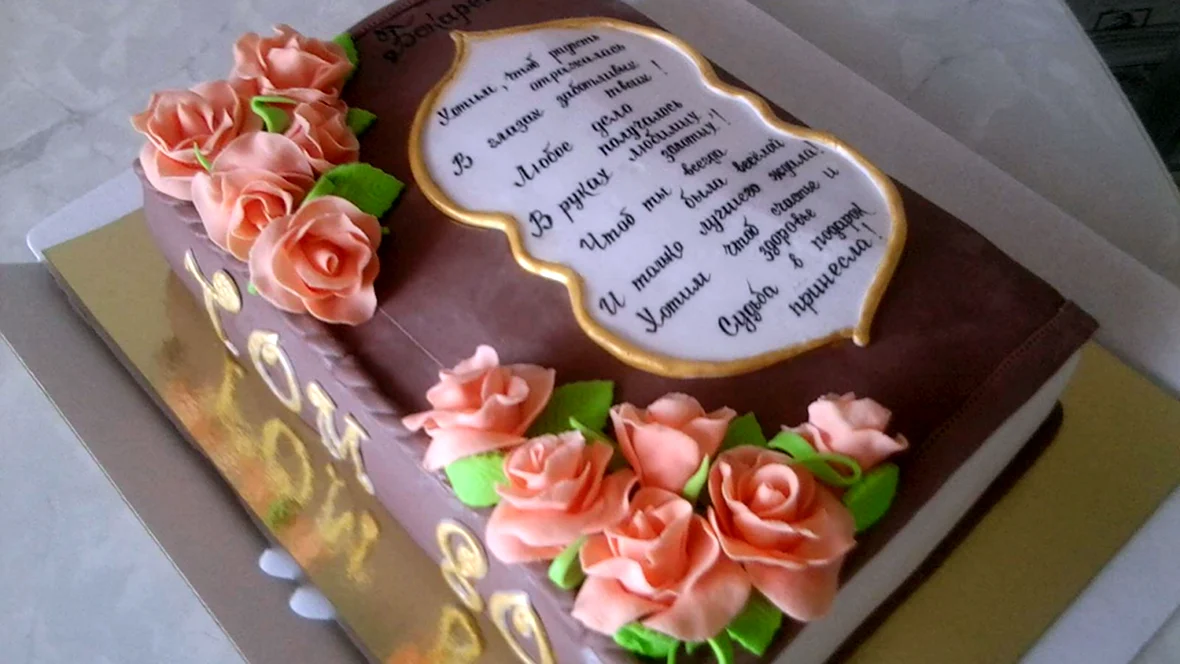 Хотим, чтоб радость
отражалась
В глазах заботливых
твоих!
Любое дело
получалось
В руках любимых
золотых!
Чтоб ты всегда
была весёлой
И только лучшего ждала!
Хотим чтоб счастье и
здоровье
Судьба в подарок
принесла!